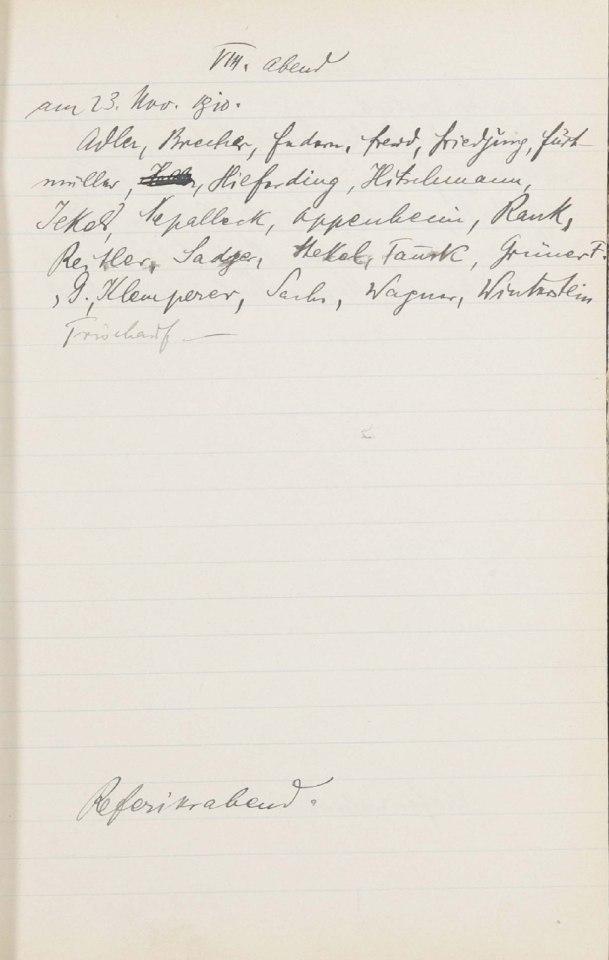 VIII. Abend
am 23. Nov. 1910.
Adler, Brecher, Federn, Freud, Friedjung, Furt-
müller, Hilferding, Hitschmann,
Jekels, Nepalleck, Oppenheim, Rank,
Reitler, Sadger, Stekel, Tausk, Grüner F.
, G., Klemperer, Sachs, Wagner, Winterstein
Frischauf.—
Referierabend.